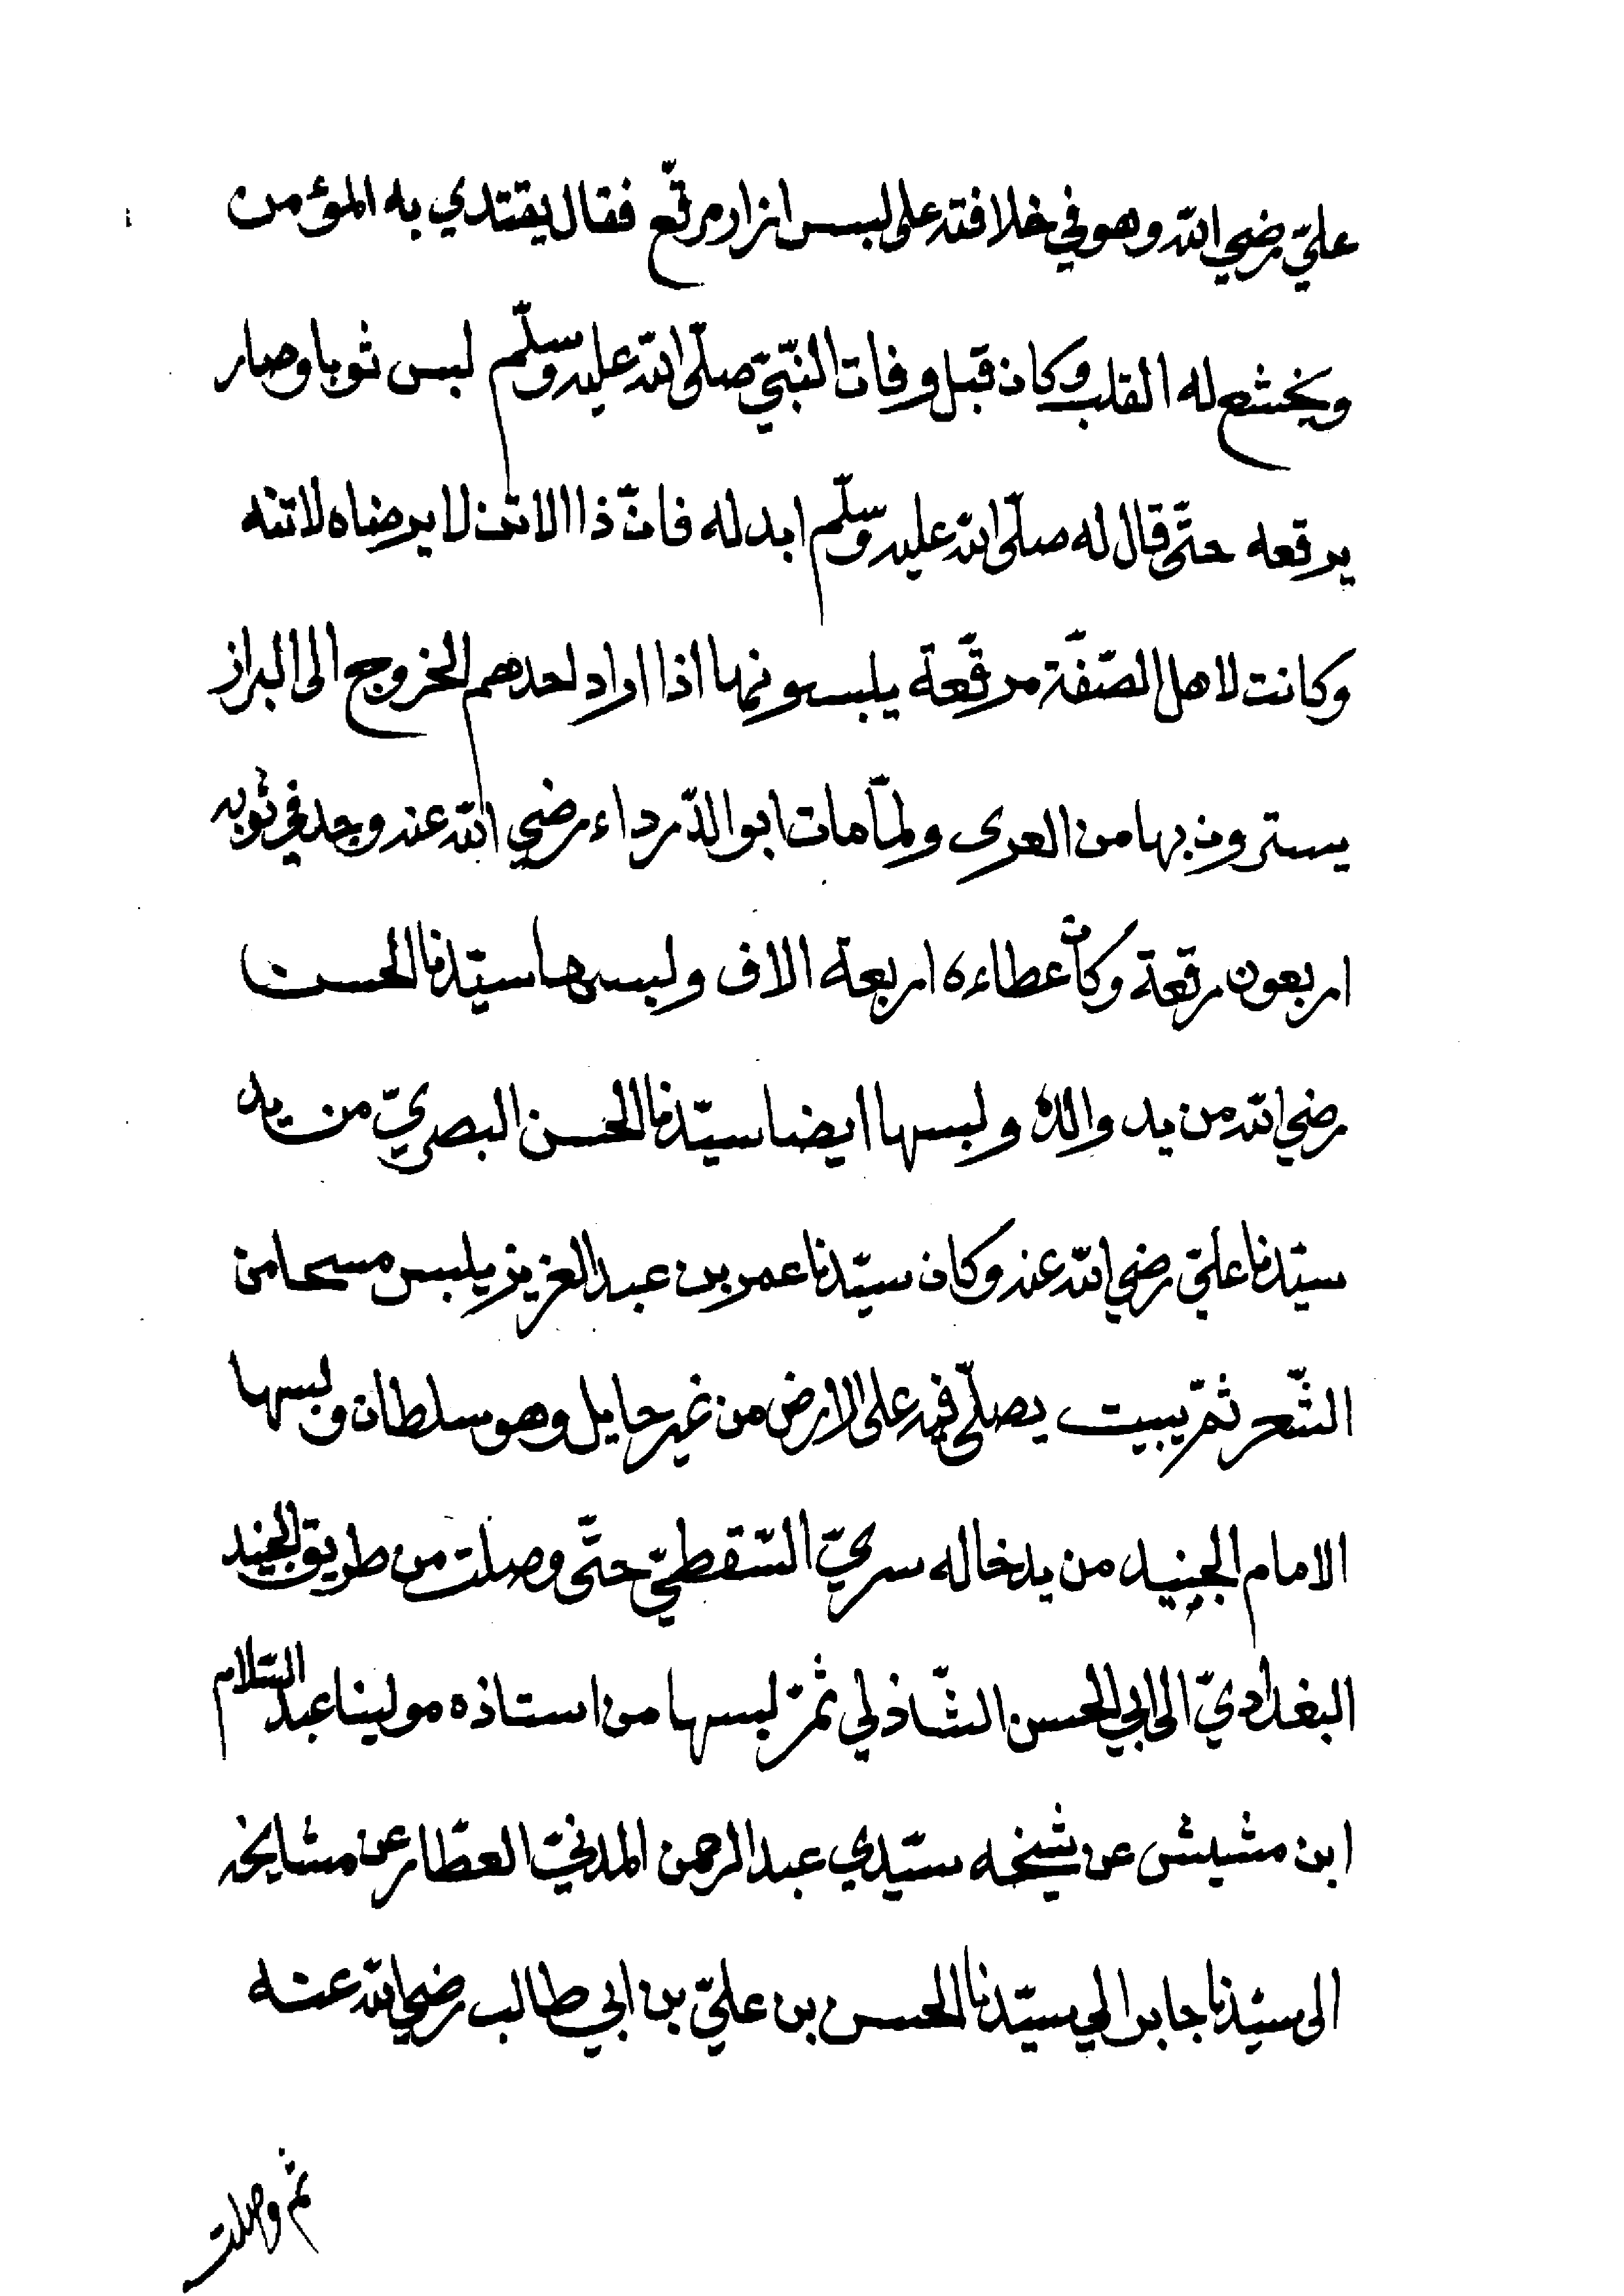 عليّ رضي الله وهو في خلافته على لبس ازار مرقّع فقال يقتدي به المؤمن
ويخشع له القلب وكان قبل وفات النّبيّ صلّى الله عليه وسلّم لبس ثوبا وصار
يرقعه حتّى قال له صلّى الله عليه وسلّم ابدله فانّ ذا الاتن لا يرضاه لاتنه
وكانت لاهل الصّفّة مرقّعة يلبسونها اذا اراد احدهم الخروج الى البراز
يسترون بها من العرى ولمّا مات ابو الدّرداء رضي الله عنه وجد في ثوبه
اربعون رقعة وكان عطاءه اربعة الاف ولبسها سيّدنا الحسن
رضي الله من يد والده ولبسها ايضا سيّدنا الحسن البصريّ من يد
سيّدنا عليّ رضي الله عنه وكان سيّدنا عمر بن عبد العزيز يلبس مسحا من
الشّعر ثمّ يبيت يصلّى فيه على الارض من غير حايل وهو سلطان ولبسها
الامام الجنيد من يد خاله سريّ السّقطيّ حتّى وصلت من طريق الجنيد
البغداديّ الى ابي الحسن الشّاذلي ثمّ لبسها من استاذه مولينا عبد السّلام
ابن مشيش عن شيخه سيّدي عبد الرحمن المدنيّ العطّار عن مشايخه
الى سيّدنا جابر الي سيّدنا الحسن بن عليّ بن ابي طالب رضي الله عنه
ثم وصلت